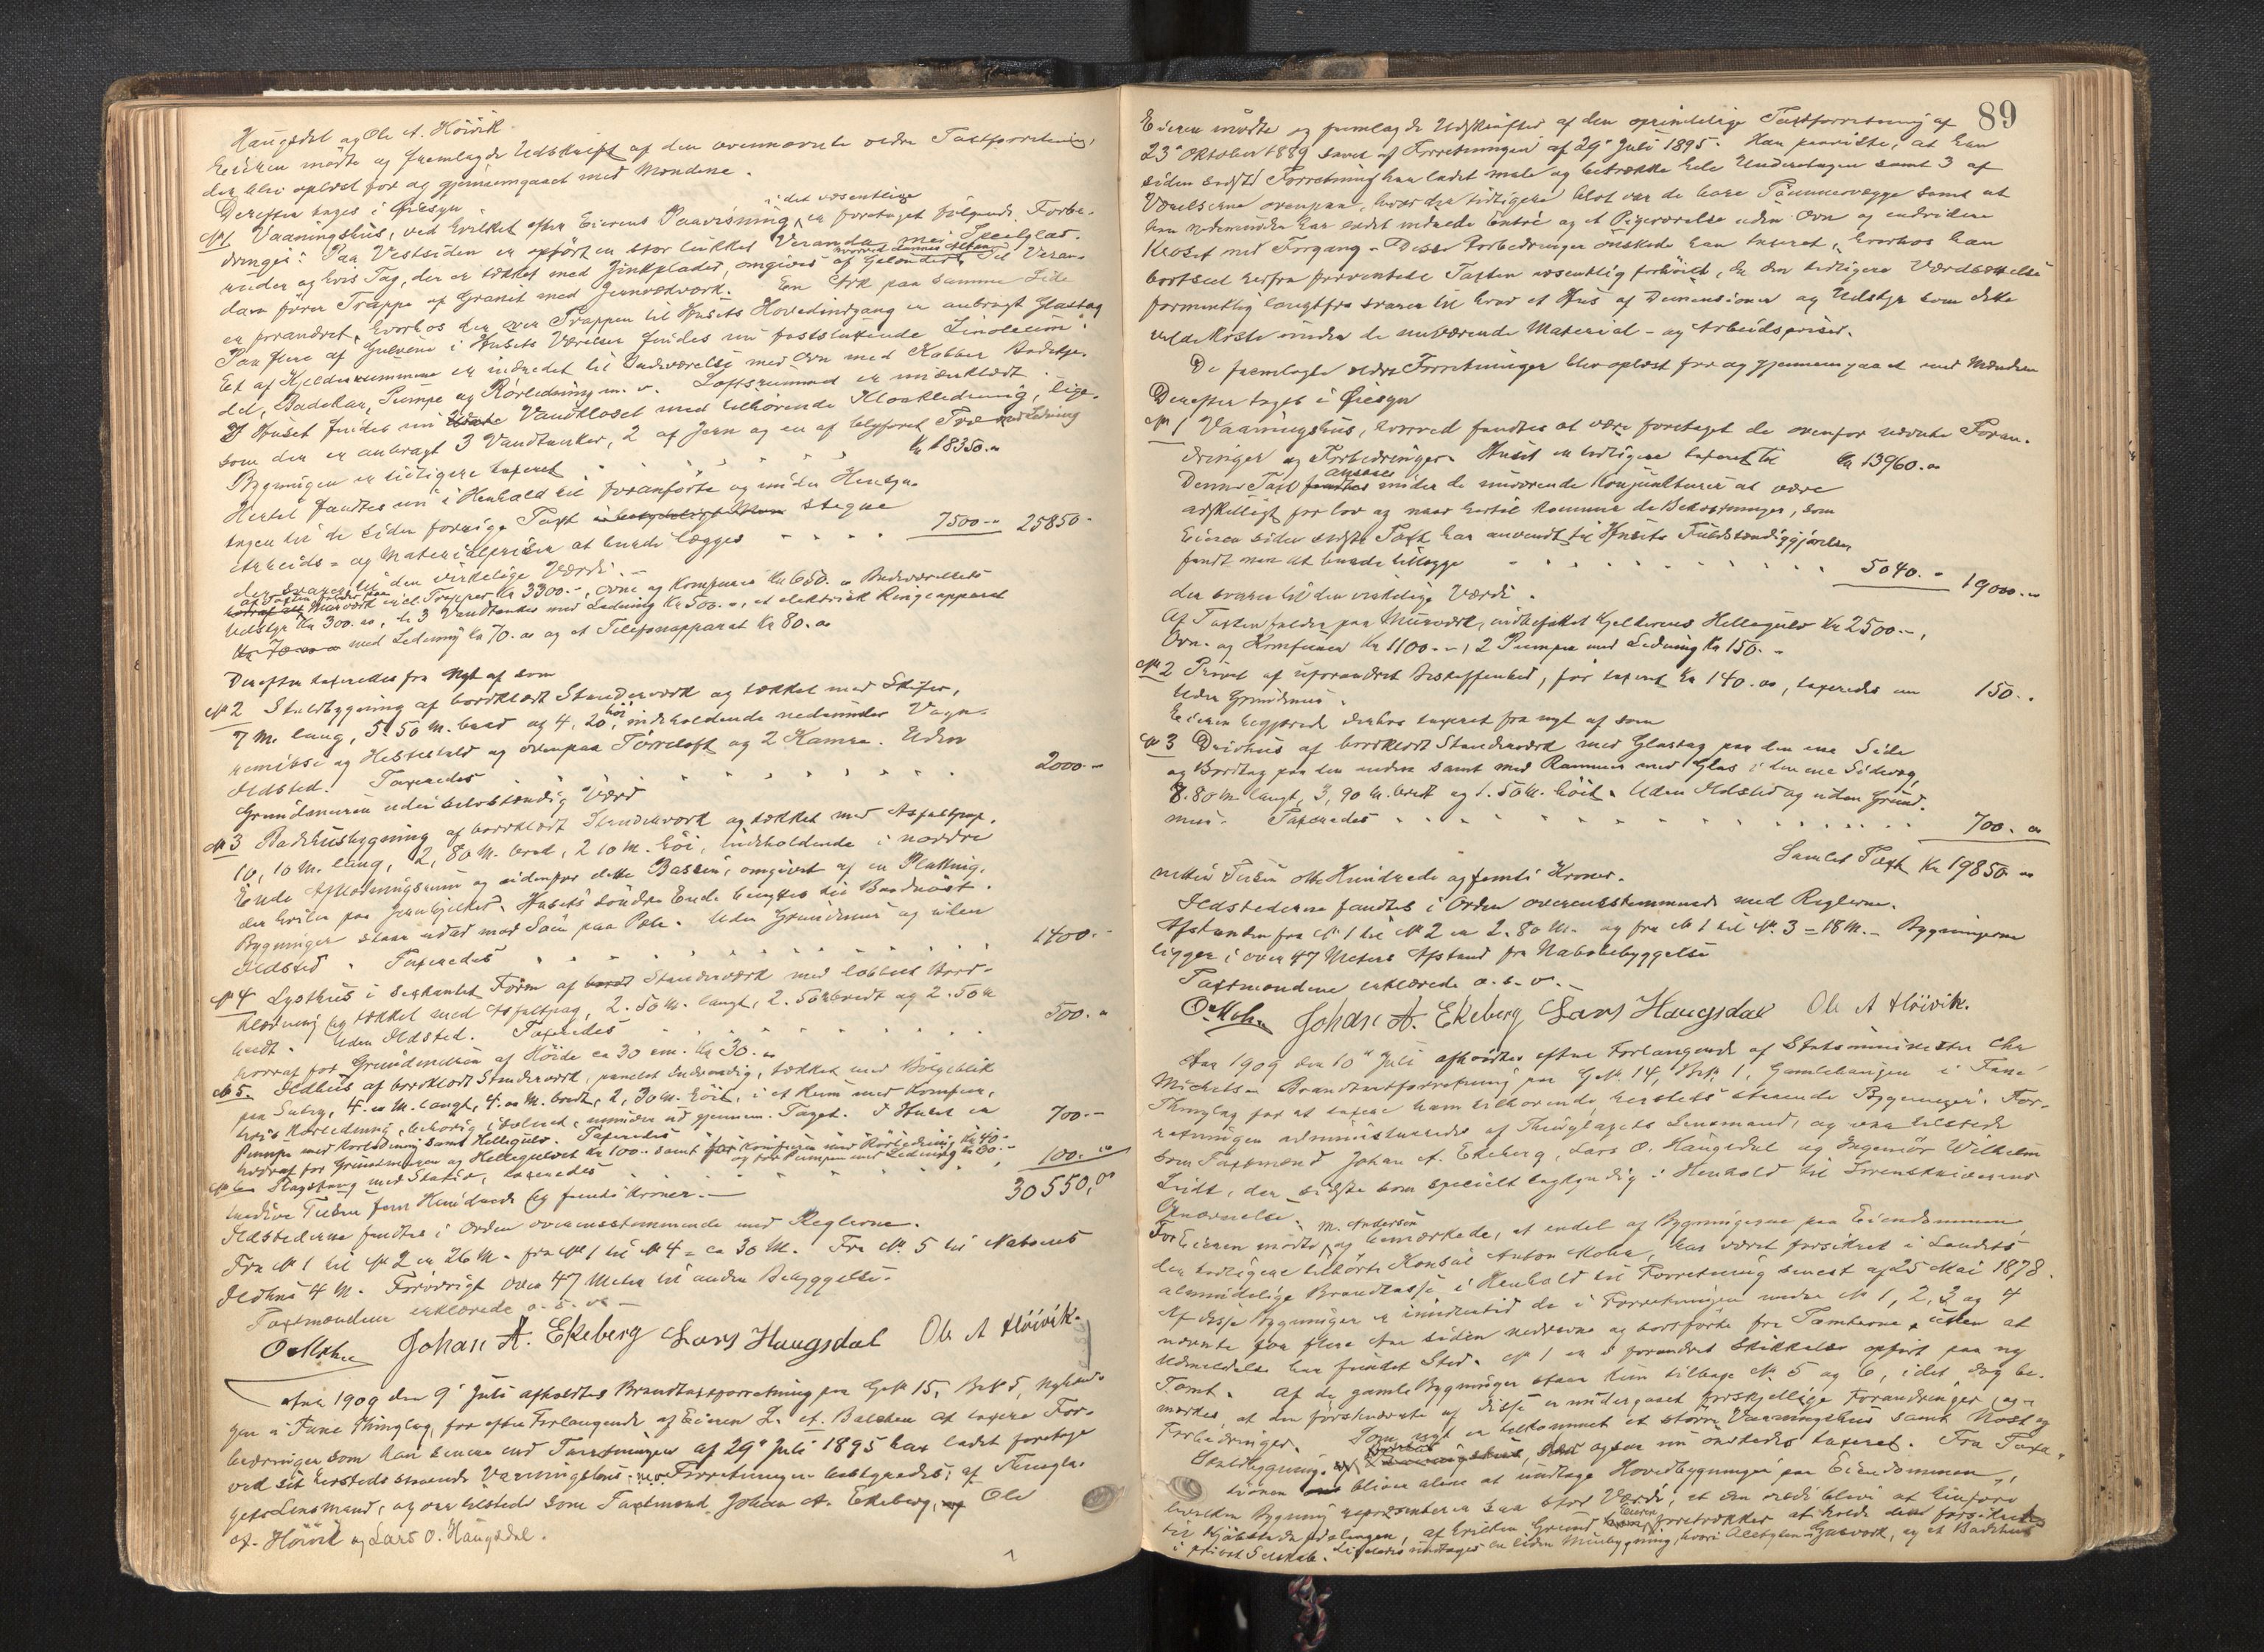 Haugsdal og Ole A. Höivik.
Eieren mødte og fremlagde Udskrift af den ovennævnte ældre Taxtforretning,
der blev oplæst for og gjennemgaaet med Mændene.
Derefter toges i Øiesyn
i det væsentlige
№ 1 Vaaningshus, ved hvilket efter Eierens Paavisning er foretaget følgende Forbe-
dringer: Paa Vestsiden er opført en stor lukket Veranda med Speilglas-
ruder og hvis Tag, der er tækket med Zinkplader, omgives af Gelænder. Til Veran-
daen fører Trappe af Granit med Jernrækværk. En Ark paa samme Side
er forandret, hvorhos der over Trappen til Husets Hovedindgang er anbragt Glastag
Paa flere af Gulvene i Husets Værelser findes nu fastsluttende Linoleum.
Et af Kjelderrummene er indredet til Badeværelse med Ovn med Kobber Beholder-
del, Badekar, Pumpe og Rørledning m. v. Loftsrummet er
I Huset findes nu Vandkloset med tilhørende Kloakledning, lige-
som der er anbragt 3 Vandtanker, 2 af Jern og en af blyforet Træ med Ledning
Bygningen er tidligere taxeret Kr 18350.00
Hertil fandtes nu i Henhold til foranførte og under Hensyn-
tagen til de siden forrige Taxt stegne
Arbeids- og Materialpriser at burde lægges 7500.00 25850.-
der svarer til den virkelige Værdi.
af Taxten falder paa Murværk incl. Trapper Kr 3300.-, Ovne og Komfurer Kr 650.00 Badeværelsets
Udstyr Kr 300.00, de 3 Vandtanker med Ledning Kr 500.00, et elektrisk Ringeapparat
med Ledning Kr 70.00 og et Telefonapparat Kr 80.00
Derefter taxeredes fra nyt af som
№ 2 Staldbygning af bordklædt Stænderværk og tækket med Skifer,
7 M. lang, 5,50 M. bred og 4,20 høi, indeholdende nedenunder Vogn-
remisse og Hestestald og ovenpaa Tørreloft og 2 Kamre. Uden
Ildsted. Taxeredes 2000.-
Grundmuren uden selvstændig Værd
№ 3 Badehusbygning af bordklædt Stænderværk og tækket med Asfaltpap,
10,10 M. lang, 2,80 M. bred, 2,10 M. høi, indeholdende i nordre
Ende Afklædningsrum og udenfor dette Bassin, omgivet af en Platting,
der hviler paa Jernbjelker. Husets søndre Ende benyttes til Baadnøst.
Bygningen staar udad mod Søen paa Pæle. Uden Grundmur og uden
Ildsted. Taxeredes 1400.-
№ 4 Lysthus i sexkantet Form af Stænderværk med løbbet Bord-
klædning og tækket med Asfaltpap, 2.50 M. langt, 2.50 bredt og 2.50 M
høidt. Uden Ildsted. Taxeredes 500.-
hvoraf for Grundmuren af Høide ca 30 cm. Kr 30.00
№ 5. Ildhus af bordklædt Stænderværk, panelet indvendig, tækket med Bølgeblik
paa Sutag, 4.00 M. langt, 4.00 M. bredt, 2,30 M. høit, i et Rum med Komfur,
hvis Rørledning, behørig isoleret, munder ud gjennem Taget. I Huset er
Pumpe med Rørledning samt Hellegulv. Taxeredes 700.-
hvoraf for Grundmuren og Hellegulvet Kr 100.- samt for Komfuren med Rørledning Kr 40.-
og for Pumpen med Ledning Kr 60.-
№ 6 Flagstang med Stativ, taxeredes 100.00
tredive Tusen fem Hundrede og femti Kroner.- 30550.00
Ildstederne fandtes i Orden overensstemmende med Reglerne.
Fra № 1 til № 2 er 26 M. fra № 1 til № 4 = ca 30 M. Fra № 5 til Naboens
Ildhus 4 M. Forøvrigt over 47 Meter til anden Bebyggelse.
Taxtmændene erklærede o. s. v.-
O Mohn Johan A. Ekeberg Lars Haugsdal Ole A Höivik.
Aar 1909 den 9' Juli afholdtes Brandtaxtforretning paa G№ 15, B№ 5,
gen i Fane Thinglag, for efter Forlangende af Eieren L. A. Balchen at taxere For-
bedringer som han senere end Taxtningen af 29' Juli 1895 har ladet foretage
ved sit hersteds staaende Vaaningshus. Forretningen bestyredes af Thingla-
gets Lensmand, og var tilstede som Taxtmænd Johan A. Ekeberg, Ole
A. Höivik og Lars O. Haugsdal.
89
Eieren mødte og fremlagde Udskrifter af den oprindelige Taxtforretning af
23' Oktober 1889 samt af Forretningen af 29' Juli 1895. Han paaviste, at han
siden sidste Forretning har ladet male og betrække hele Underetagen samt 3 af
Værelserne ovenpaa, hvor der tidligere blot var de bare Tømmervægge samt at
han nedenunder har ladet indrede Entré og et Pigeværelse uden Ovn og endvidere
Kloset med Forgang. Disse Forbedringer ønskede han taxeret, hvorhos han
bortseet herfra forventede Taxten væsentlig forhøiet, da den tidligere Værdsættelse
formentlig langtfra svarer til hvad et Hus af Dimensioner og Udstyr som dette
vilde koste under de nuværende Material- og Arbeidspriser.
De fremlagte ældre Forretninger blev oplæst for og gjennemgaaet med Mændene
Derefter toges i Øiesyn
№ 1 Vaaningshus, hvorved fandtes at være foretaget de ovenfor nævnte Foran-
dringer og Forbedringer. Huset er tidligere taxeret til Kr 13960.00
Denne Taxt ansaaes under de nuværende Konjunkturer at være
adskilligt for lav og naar hertil kommer de Bekostninger, som
Eieren siden sidste Taxt har anvendt til Husets Fuldstændiggjørelse
fandt man at burde tillægge 5040.- 19000.00
der svarer til den virkelige Værdi.
Af Taxten falder paa Murværk, indbefattet Kjelderens Hellegulv Kr 2500.-,
Ovn- og Komfurer Kr 1100.-, 2 Pumper med Ledning Kr 150.-
№ 2 Privet af uforandret Beskaffenhed, før taxeret Kr 140.00, taxeredes nu 150.-
Uden Grundmur.
Eieren begjærede derhos taxeret fra nyt af som
№ 3 Drivhus af bordklædt Stænderværk med Glastag paa den ene Side
og Bordtag paa den anden samt med Rammer med Glas i den ene Sidevæg,
8.80 M. langt, 3,90 M. bredt og 1.50 M. høit. Uden Ildsted og uden Grund-
mur. Taxeredes 700.00
Samlet Taxt Kr 19850.00
nitten Tusen otte Hundrede og femti Kroner.
Ildstederne fandtes i Orden overensstemmende med Reglerne.
Afstanden fra № 1 til № 2 er 2.80 M. og fra № 1 til № 3 = 18 M.- Bygningerne
ligger i over 47 Meters Afstand fra Nabobebyggelse
Taxtmændene erklærede o. s. v.-
O Mohn Johan A. Ekeberg Lars Haugsdal Ole A Höivik.
Aar 1909 den 10' Juli afholdtes efter Forlangende af Statsminister Chr
Michelsen Brandtaxtforretning paa G№ 14, B№ 1, Gamlehaugen i Fane
Thinglag for at taxere ham tilhørende hersteds staaende Bygninger. For-
retningen administreredes af Thinglagets Lensmand, og var tilstede
som Taxtmænd Johan A. Ekeberg, Lars O. Haugsdal og Ingeniør Wilhelm
, den sidste som specielt sagkyndig i Henhold til Sorenskriverens
Opnævnelse.
For Eieren mødte M. Andersen og bemærkede, at endel af Bygningerne paa Eiendommen,
der tidligere tilhørte Konsul Anton Mohr, har været forsikret i Landets
almindelige Brandkasse i Henhold til Forretning senest af 25 Mai 1878.
Af disse Bygninger er imidlertid de i Forretningen under № 1, 2, 3 og 4
nævnte for flere Aar siden nedrevne og bortførte fra Tomterne, uden at
Udmeldelse har fundet Sted. № 1 er i forandret Skikkelse opført paa ny
Tomt. Af de gamle Bygninger staar kun tilbage № 5 og 6, idet dog be-
mærkes, at den førstnævnte af disse er undergaaet forskjellige Forandringer og
Forbedringer. Som nyt er tilkommet et større Vaaningshus samt Nøst og
Staldbygning, ogsaa nu ønskedes taxeret. Fra Taxa-
tionen bliver alene at undtage Hovedbygningen paa Eiendommen,
hvilken Bygning repræsenterer saa stor Værdi, at den vilde blive at henføre
til Kjøbstadsafdelingen, af hvilken Grund Eieren foretrækker at holde den forsikret
i privat Selskab. Ligeledes undtages en liden Murbygning, hvori Acetylen-Gasværk, og et Badehus